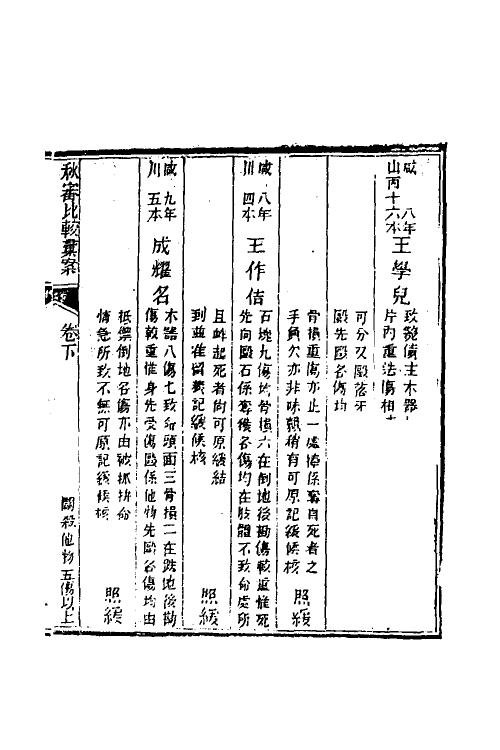 咸 八年
山丙十六本
王學兒
致斃債主木器
片內重法傷相
可分又毆落死
毆先毆各傷均
骨損重傷亦止一處棒係奪自死者之
手負欠亦非昧賴稍有可原記緩候核
照緩
咸 八年
川 四本
王作佶
石塊九傷均骨損六在倒地後勘傷較重惟死
先向毆石係奪獲各傷均在肢體不致命處所
且衅起死者尚可原緩結
到並准留養記緩候核
照緩
咸 九年
川 五本
成耀名
木器八傷七致命頭面三骨損二在跌地後勘
傷較重惟身先受傷毆係他物先毆各傷均由
抵禦倒地各傷亦由被抓拚命
情急所致不無可原記緩候核
照緩
秋審比較彙案
卷下
鬭殺他物五傷以上